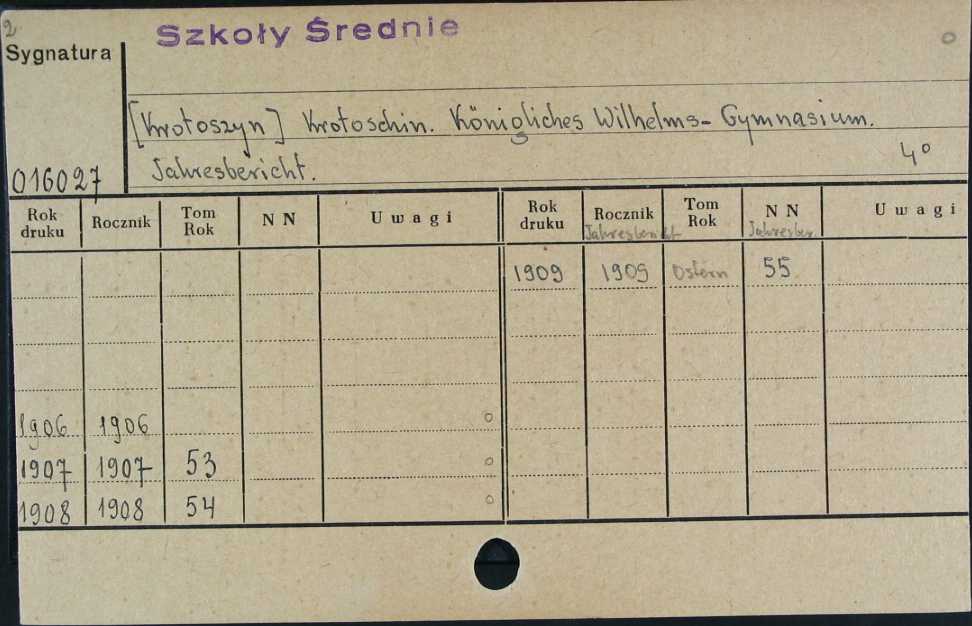 2
Szkoły Średnie
Sygnatura
[Krotoszyn] Krotoschin. Königliches Wilhelms-Gymnasium.
Jahresbericht. 4°
016027
Rok druku Rocznik Tom Rok NN Uwagi Rok druku Rocznik Jahresbericht Tom Rok NN Jahresber. Uwagi
1909 1909 Ostern 55
1906 1906
1907 1907 53
1908 1908 54